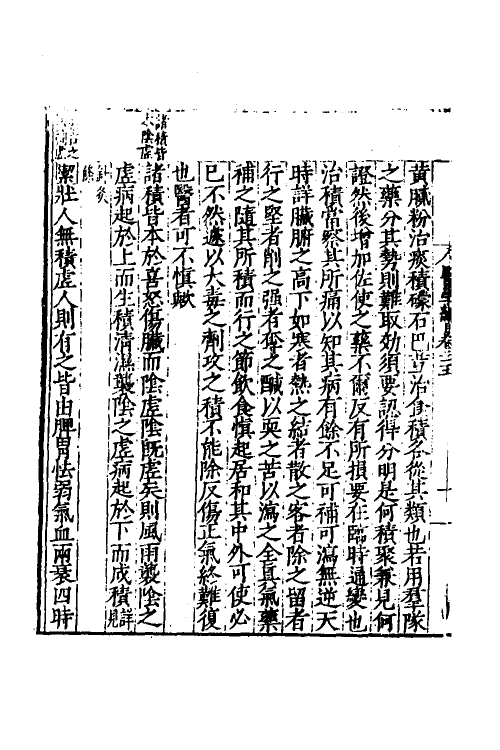 醫學綱目卷二十五
黃膩粉治痰積礞石巴豆治食積各從其類也若用羣隊
之藥分其勢則難取効須要認得分明是何積聚兼見何
證然後增加佐使之藥不爾反有所損要在臨時通變也
治積當察其所痛以知其病有餘不足可補可瀉無逆天
時詳臟腑之高下如寒者熱之結者散之客者除之留者
行之堅者削之强者奪之醎以耎之苦以瀉之全真氣藥
補之隨其所積而行之節飲食慎起居和其中外可使必
已不然遽以大毒之劑攻之積不能除反傷正氣終難復
也醫者可不慎歟
諸積皆
陰虛
諸積皆本於喜怒傷臟而陰虛陰既虛矣則風雨襲陰之
虛病起於上而生積清濕襲陰之虛病起於下而成積詳見
針灸
條
潔壯人無積虛人則有之皆由脾胃怯弱氣血兩衰四時